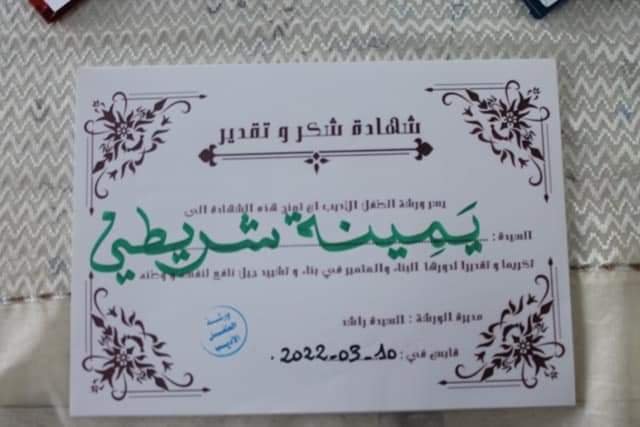 شهادة شكر و تقدير
يسر ورشة الطفل الأديب ان تمنح هذه الشهادة الى
السيدة : يَمِينة شريطي
تكريما و تقديرا لدورها البناء والمتميز في بناء و تشييد جيل نافع لنفسه و وطنه
مديرة الورشة : السيدة راشد
قابس في : 10-03-2022.
ورشة
الطفل
الأديب